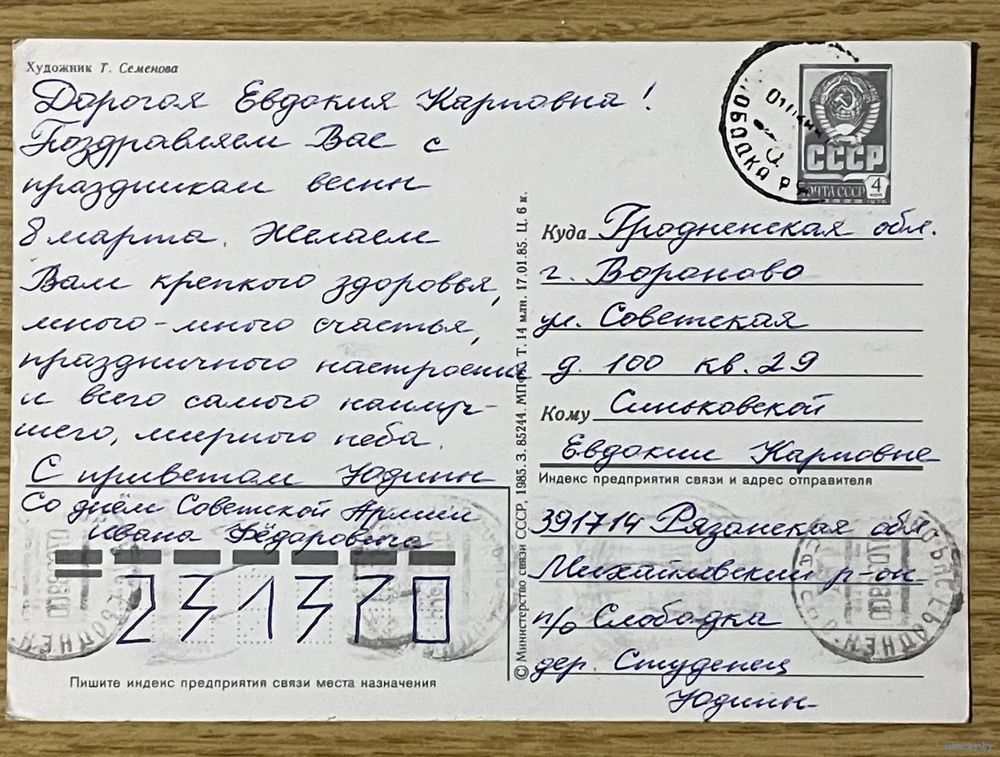 Художник Т. Семенова
Дорогая Евдокия Карповна!
Поздравляем Вас с
праздником весны
8 марта. Желаем
Вам крепкого здоровья,
много-много счастья,
праздничного настроения
и всего самого наилуч-
шего, мирного неба.
С приветом Юдины
Со днём Советской Армии
Ивана Фёдоровича
231370
Пишите индекс предприятия связи места назначения
© Министерство связи СССР, 1985. З. 85244. МПФГ. Т. 14 млн. 17.01.85. Ц. 6 к.
СЛОБОДКА
СССР
ПОЧТА СССР
4
1976
Куда Гродненская обл.
г. Вороново
ул. Советская
д. 100 кв. 29
Кому Синьковской
Евдокии Карповне
Индекс предприятия связи и адрес отправителя
391714 Рязанская обл
Михайловский р-он
п/о Слободка
дер. Студенец
Юдины